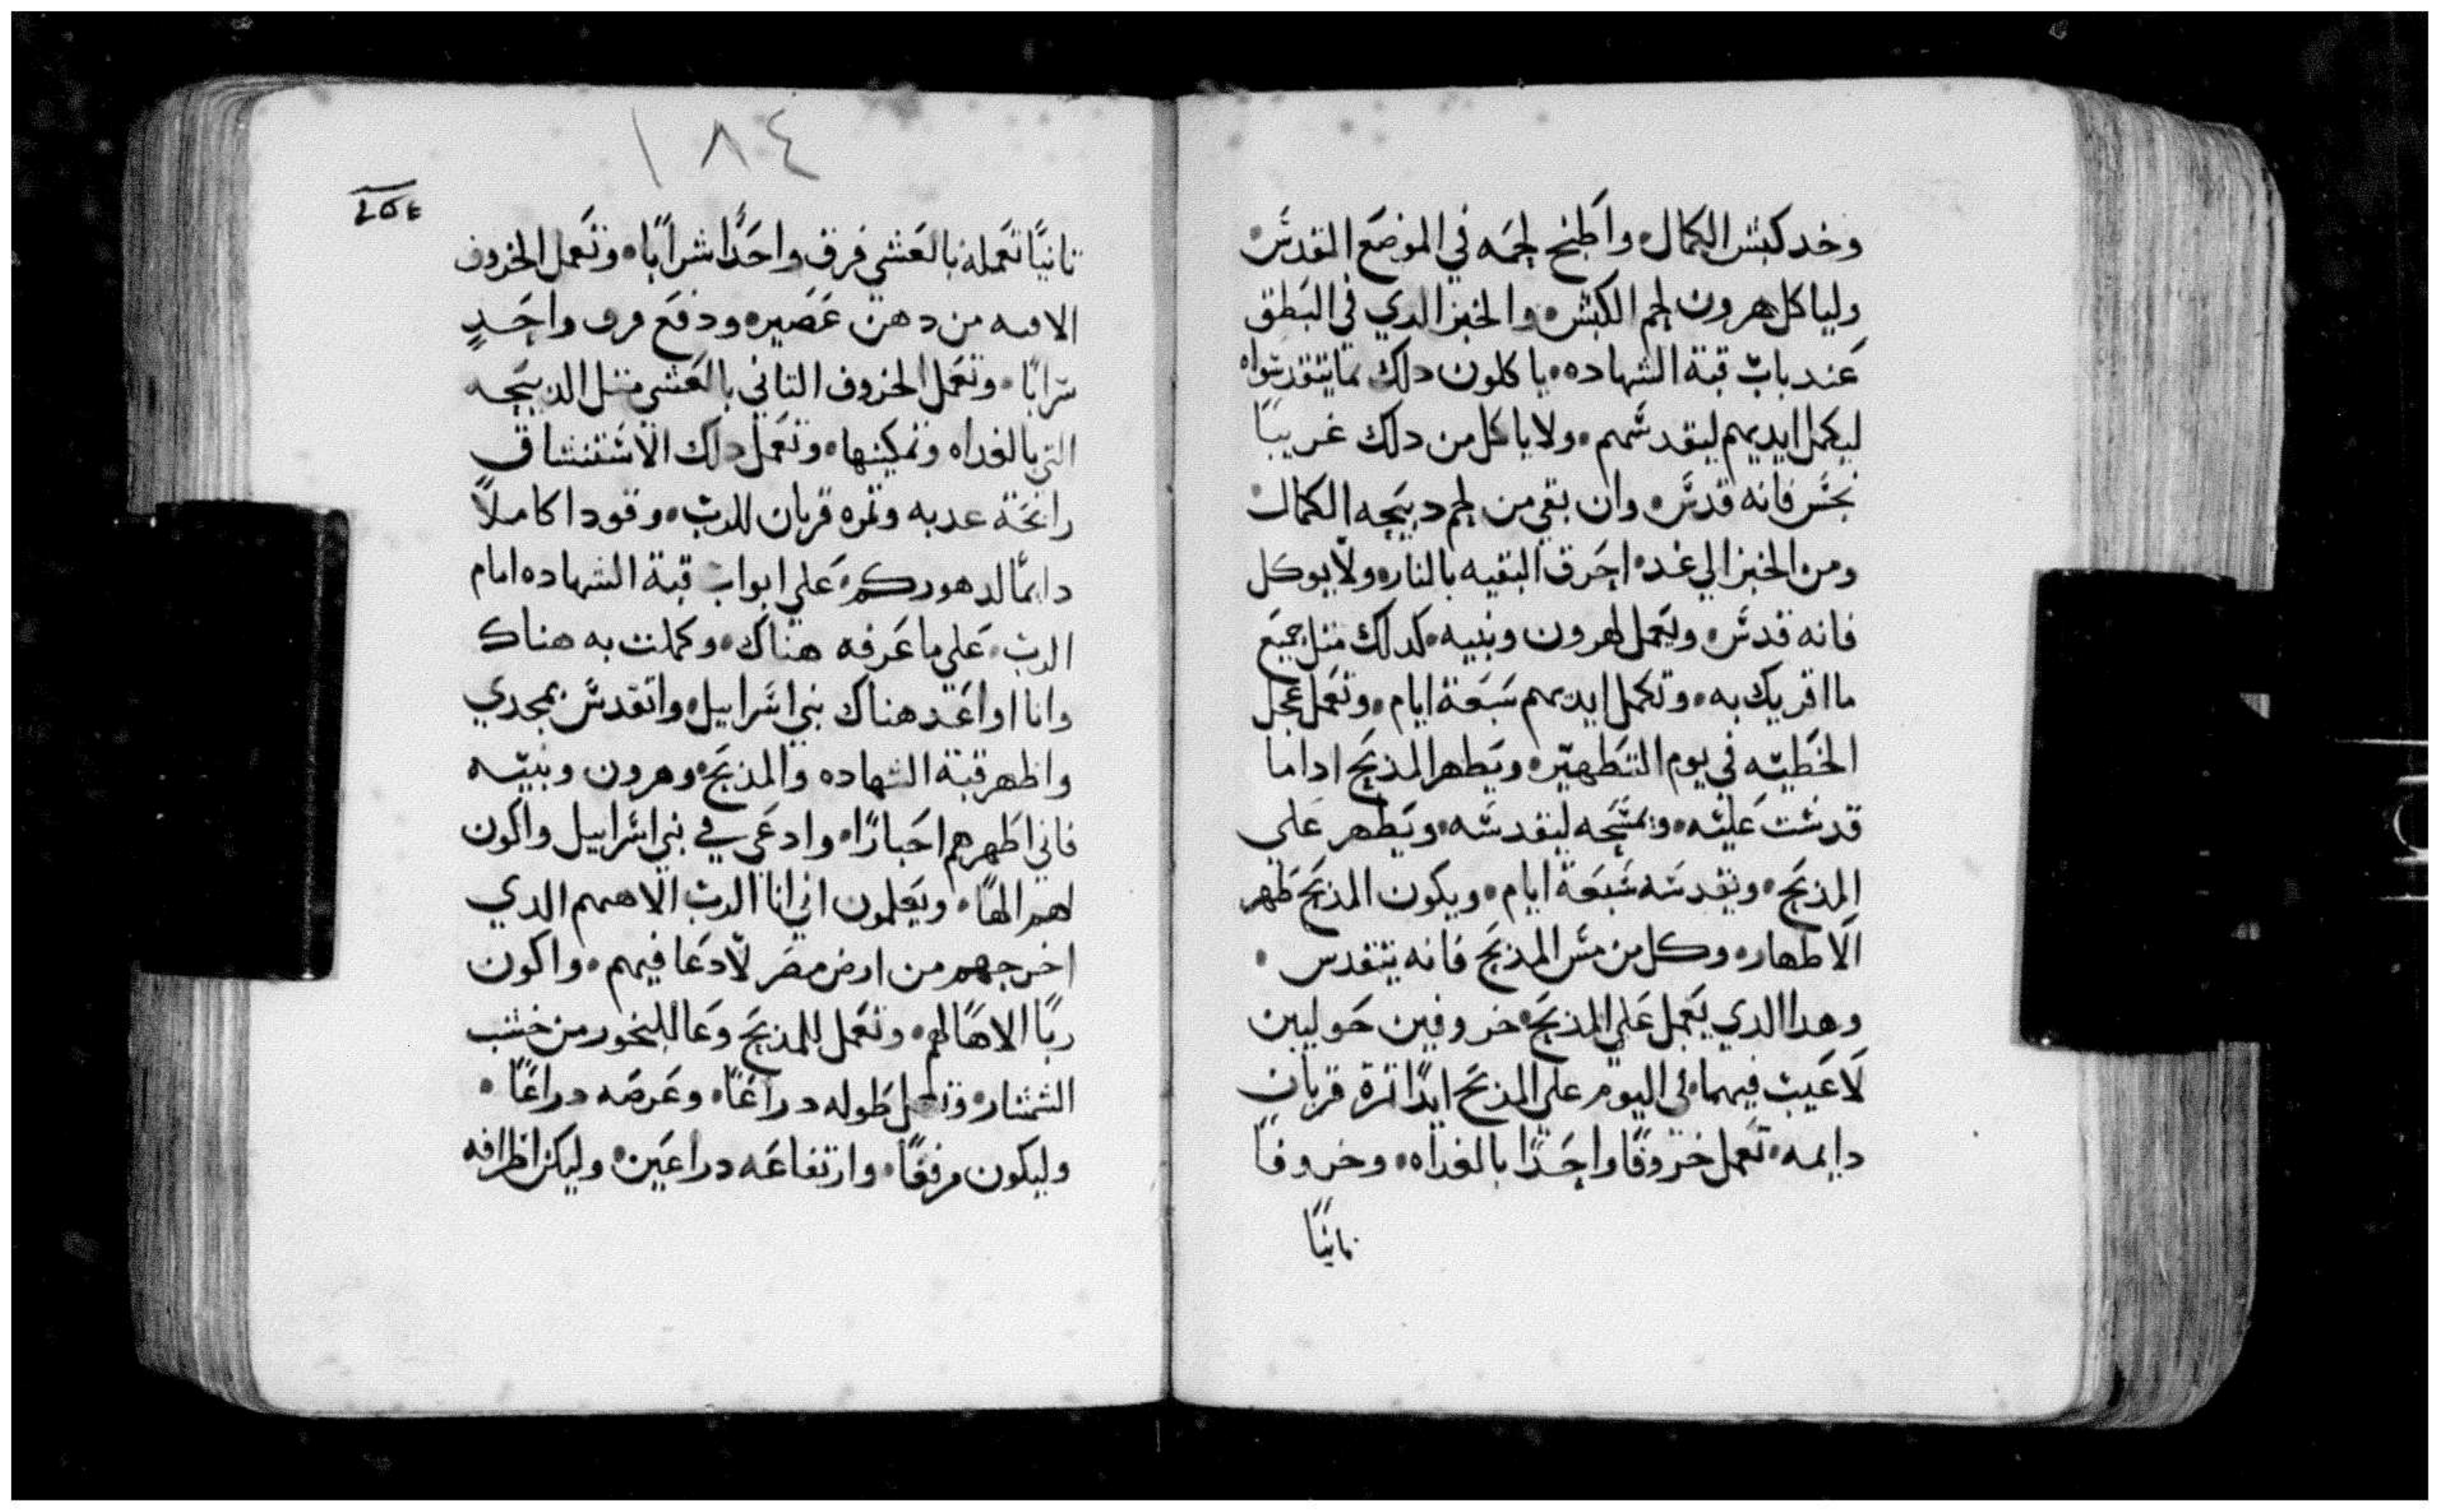 وخد كبش الكمال • واطبخ لحمه في الموضع القدس •
ولياكل هرون لحم الكبش • والخبز الدي في الطبق
عند باب قبة الشهاده • ياكلون دلك بما يتقدسواه
ليكمل ايديهم ليقدسهم • ولا ياكل من دلك غريبًا
نجس فانه قدس • وان بقي من لحم دبيحه الكمال •
ومن الخبز الي غد • احرق البقيه بالنار • ولا يوكل
فانه قدس • وتعمل لهرون وبنيه • كدلك مثل جميع
ما اقريك به • وتكمل ايديهم سبعة ايام • وتعمل عجل
الخطيه في يوم التطهير • ويطهر المدبح اداما
قدست عليه • وتمسحه ليقدسه • ويطهر علي
المدبح • وتقدسه سبعة ايام • ويكون المدبح طهر
الاطهار • وكل من مس المدبح فانه يتقدس •
وهدا الدي يعمل علي المدبح • خروفين حوليين
لا عيب فيهما • في اليوم علي المدبح ابدًا ثمرة قربان
دايمه • تعمل خروفًا واحدًا بالغداه • وخروفًا
ثانيًا
١٨٤
ثانيًا تعمله بالعشي فرق واحدًا شرابًا • وتعمل الخروف
من دهن عصير • ودفع فرق واحدٍ
شرابًا • وتعمل الخروف التاني بالعشي مثل الدبيحه
التي بالغداه وتمكينها • وتعمل دلك الاستنشاق
رائحة عدبه وثمره قربان للرب • وقودا كاملًا
دايمًا لدهوركم • علي ابواب قبة الشهاده امام
الرب • علي ما عرفه هناك • وكملت به هناك
وانا اواعد هناك بني اسراييل • واتقدس بمجدي
واظهر قبة الشهاده والمدبح • وهرون وبنيه
فاني اطهرهم احبارًا • وادعي في بني اسراييل واكون
لهم الهًا • ويعلمون اني انا الرب الاههم الدي
اخرجهم من ارض مصر لادعا فيهم • واكون
ربًا الاهًا لهم • وتعمل للمدبح وعا للبخور من خشب
الشمشار • وتعمل طوله دراعًا • وعرضه دراعًا •
وليكون مرفقًا • وارتفاعه دراعين • وليكن اطرافه